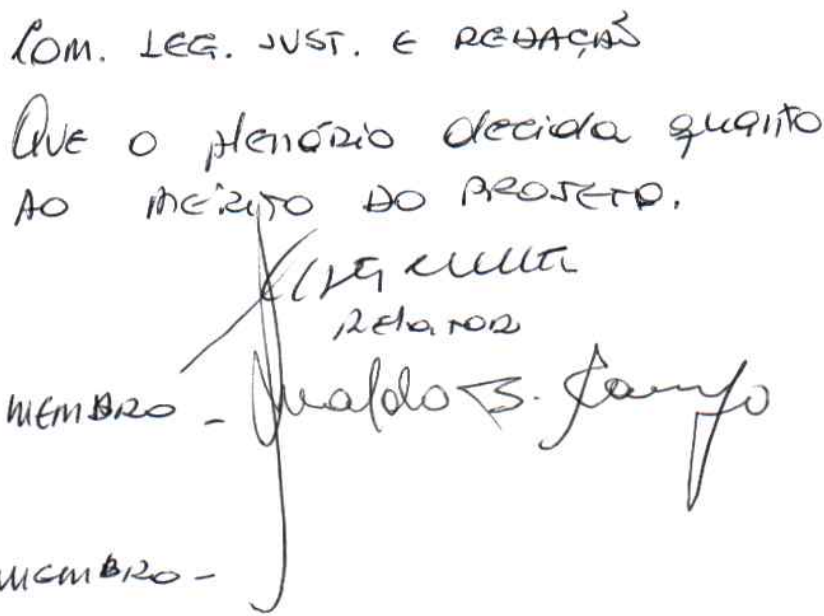 COM. LEG. JUST. E REDAÇÃO
QUE O plenário decida quanto
AO MÉRITO DO PROJETO.
Relator
MEMBRO -
MEMBRO -